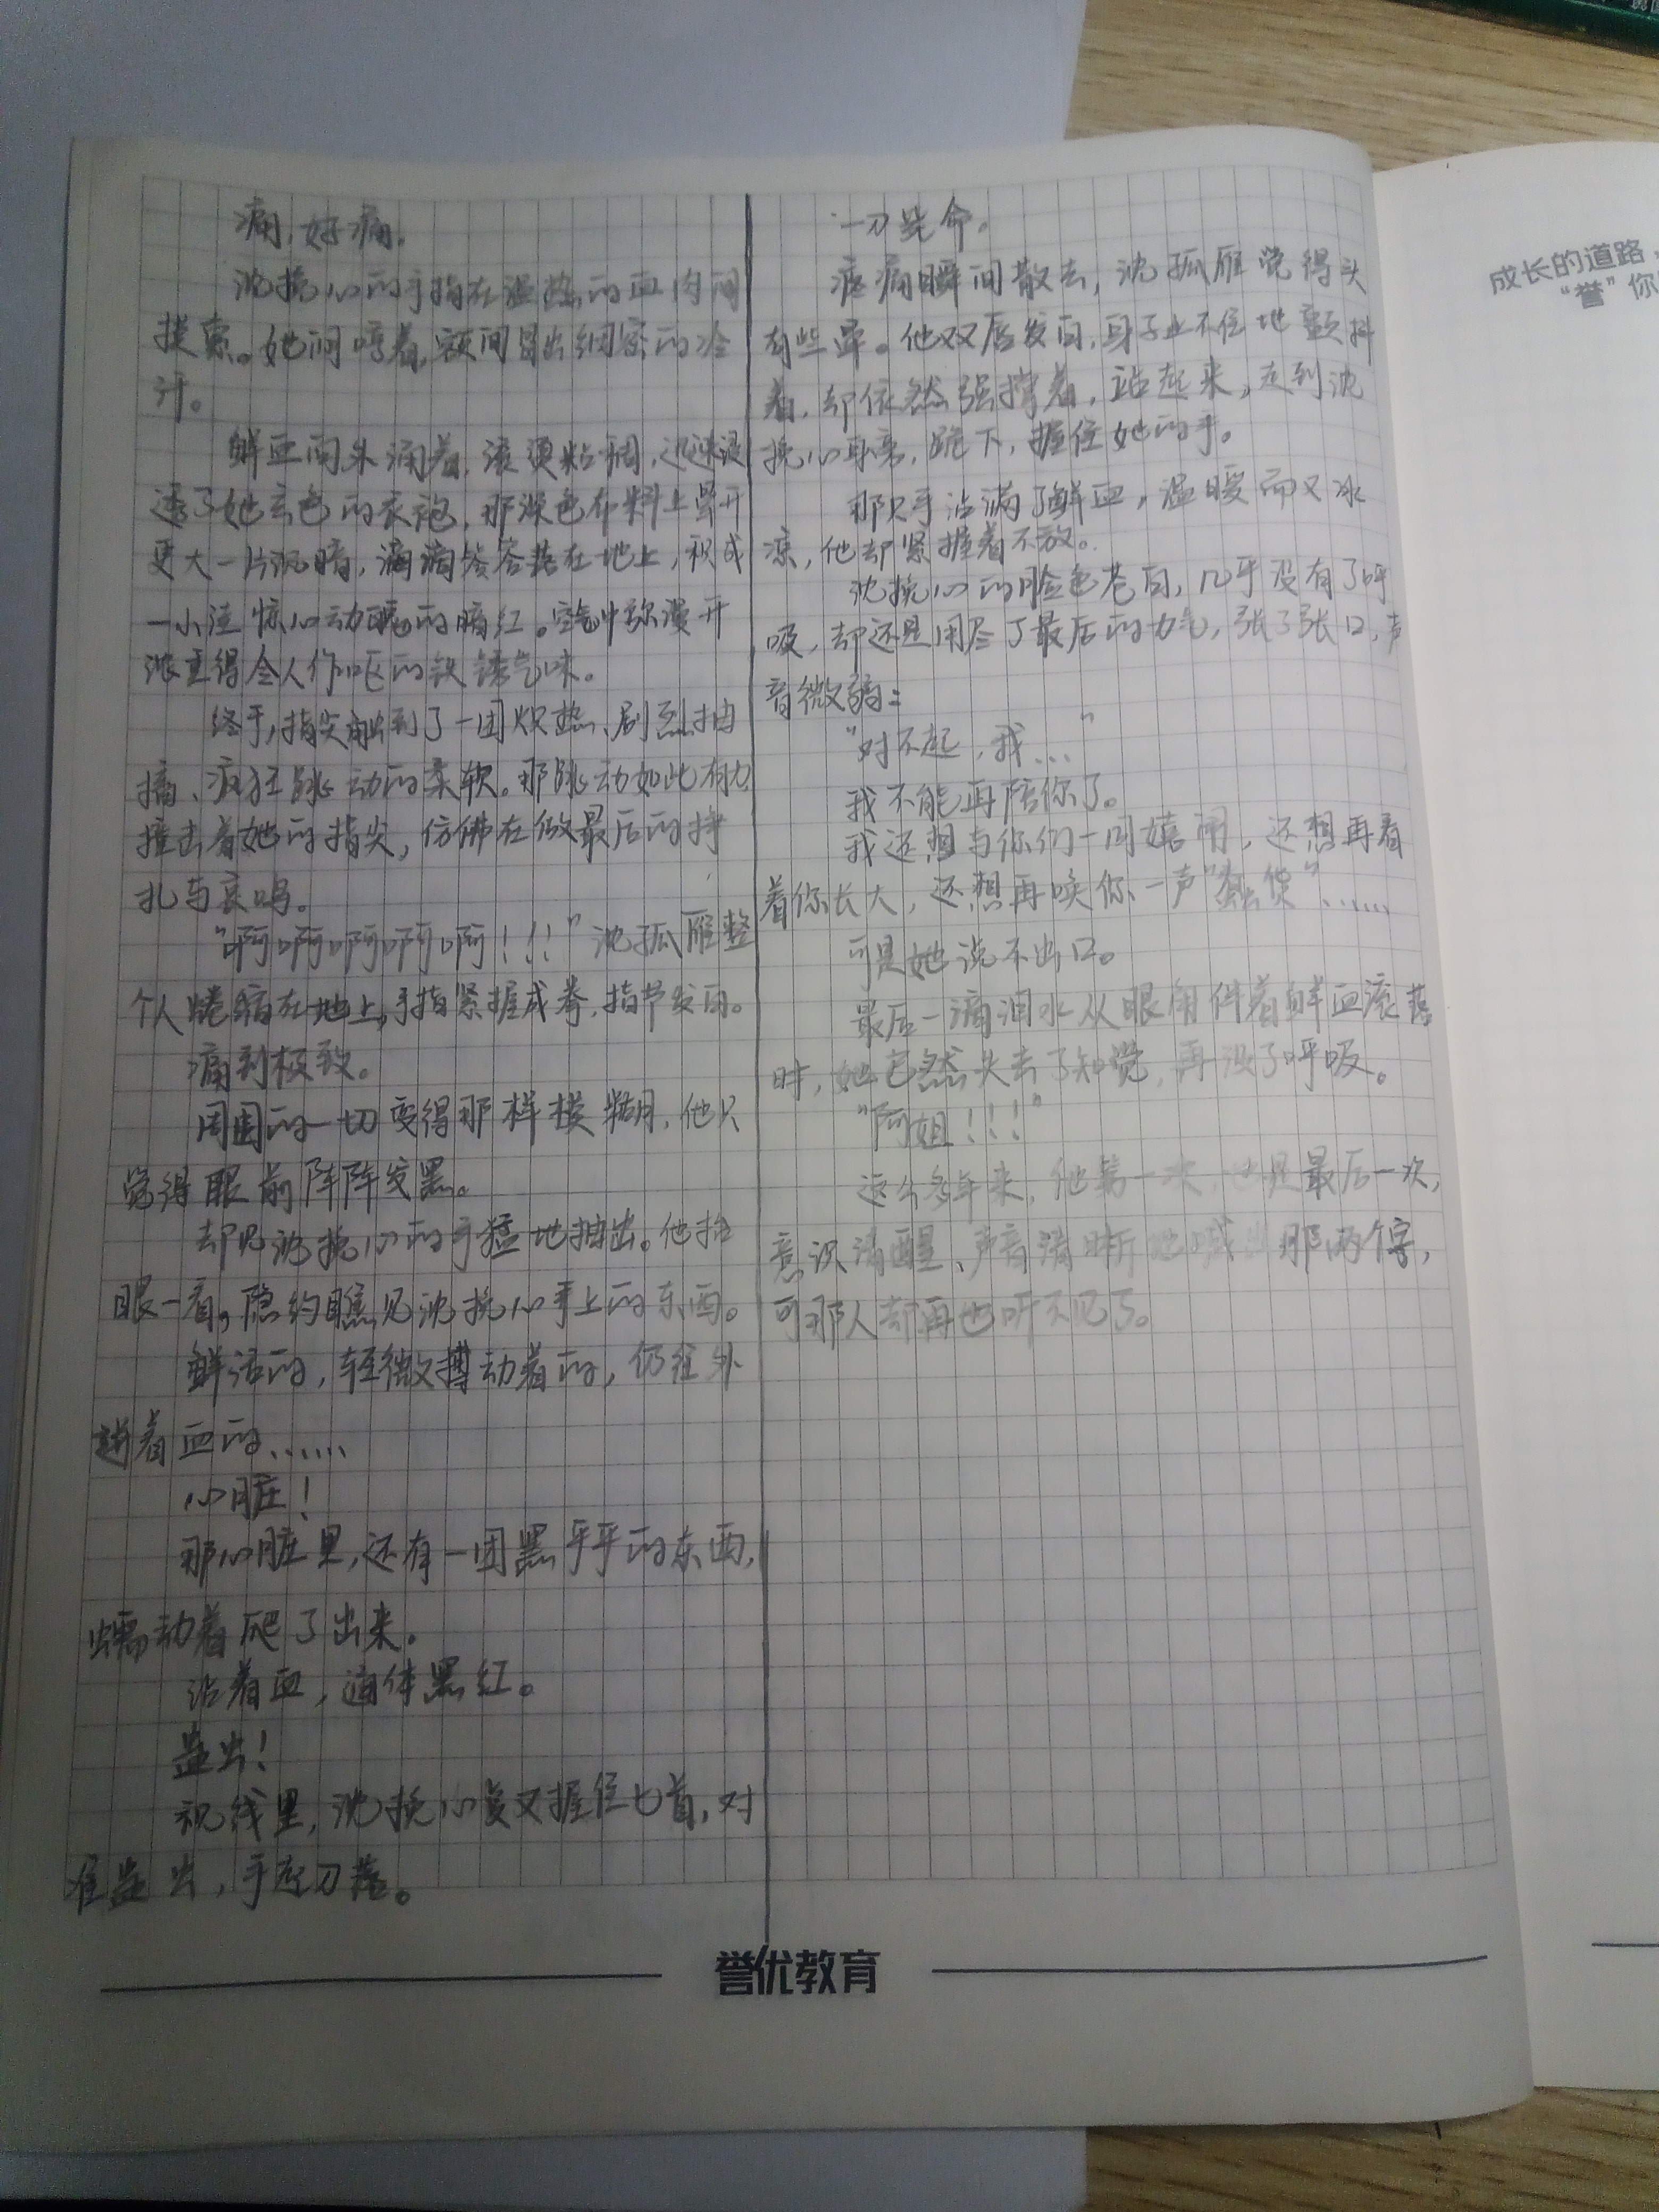 痛,好痛。
沈挽心的手指在温热的血肉间
摸索。她闷哼着,额间冒出细密的冷
汁。
鲜血向外涌着,滚烫粘稠,迅速浸
透了她玄色的衣袍,那深色布料上晕开
更大一片沉暗,滴滴答答落在地上,积成
一小洼惊心动魄的暗红。空气中弥漫开
浓重得令人作呕的铁锈气味。
终于,指尖触到了一团炽热、剧烈抽
搐、疯狂跳动的柔软。那跳动如此有力,
撞击着她的指尖,仿佛在做最后的挣
扎与哀鸣。
“啊啊啊啊啊!!!”沈孤雁整
个人蜷缩在地上,手指紧握成拳,指节发白。
痛到极致。
周围的一切变得那样模糊,他只
觉得眼前阵阵发黑。
却见沈挽心的手猛地抽出。他抬
眼一看,隐约瞧见沈挽心手上的东西。
鲜活的,轻微搏动着的,仍往外
迸着血的……
心脏!
那心脏里,还有一团黑乎乎的东西,
蠕动着爬了出来。
沾着血,通体黑红。
蛊虫!
视线里,沈挽心复又握住匕首,对
准蛊虫,手起刀落。
一刀毙命。
疼痛瞬间散去,沈孤雁觉得头
有些晕。他双唇发白,身子止不住地颤抖
着,却依然强撑着,站起来,走到沈
挽心身旁,跪下,握住她的手。
那只手沾满了鲜血,温暖而又冰
凉,他却紧握着不放。
沈挽心的脸色苍白,几乎没有了呼
吸,却还是用尽了最后的力气,张了张口,声
音微弱:
“对不起,我…”
我不能再陪你了。
我还想与你们一同嬉闹,还想再看
着你长大,还想再唤你一声“蠢货”……
可是她说不出口。
最后一滴泪水从眼角伴着鲜血滚落
时,她已然失去了知觉,再没了呼吸。
“阿姐!!!”
这么多年来,他第一次,也是最后一次,
意识清醒、声音清晰地喊出那两个字,
可那人却再也听不见了。
誉优教育
成长的道路,
“誉”你